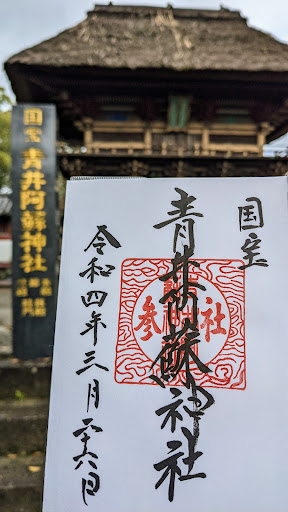 国宝 青井阿蘇神社
国宝
青井阿蘇神社
令和四年三月二十六日